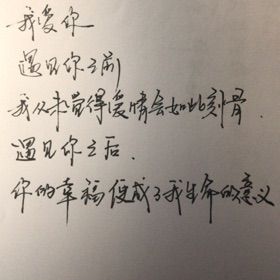 我爱你
遇见你之前
我从未觉得爱情会如此刻骨.
遇见你之后.
你的幸福便成了我生命的意义